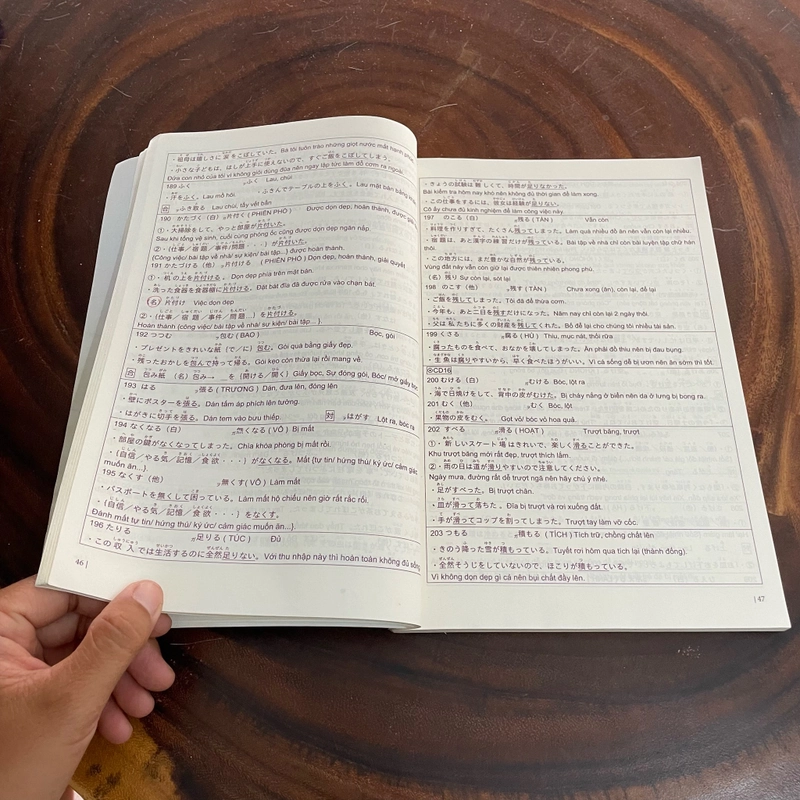 ・祖母は嬉しさに涙をこぼしていた。Bà tôi luôn trào những giọt nước mắt hạnh phúc
・小さな子どもは、はしが上手に使えないので、すぐご飯をこぼしてしまう。
Đứa con nhỏ của tôi vì không giỏi dùng đũa nên ngay lập tức làm đổ cơm ra ngoài.
189 ふく ふく Lau, chùi
・汗をふく。Lau mồ hôi ・ふきんでテーブルの上をふく。Lau mặt bàn bằng khăn
合 ふき取る Lau chùi, tẩy vết bẩn
190 かたづく（自） 片付く ( PHIẾN PHÓ ) Được dọn dẹp, hoàn thành, được giải
①・大掃除をして、やっと部屋が片付いた。
Sau khi tổng vệ sinh, cuối cùng phòng ốc cũng được dọn dẹp ngăn nắp
②・{仕事／宿題／事件/問題・・}が片付いた。
(Công việc/ bài tập về nhà/ sự kiện/ bài tập..} được hoàn thành.
191 かたづける（他） 片付ける ( PHIẾN PHÓ ) Dọn dẹp, hoàn thành, giải quyết
①・机の上を片付ける。Dọn dẹp phía trên mặt bàn.
・洗った食器を食器棚に片付ける。Đặt bát đĩa đã được rửa vào chạn bát.
(名) 片付け Việc dọn dẹp
②・{仕事／宿題／事件／問題…} を片付ける。
Hoàn thành {công việc/ bài tập về nhà/ sự kiện/ bài tập... }
192 つつむ 包む ( BAO ) Bọc, gói
・プレゼントをきれいな紙 (で／に) 包む。Gói quà bằng giấy đẹp.
・残ったおかしを包んで持って帰る。Gói kẹo còn thừa lại rồi mang về.
合 包み紙 (名) 包み→ ＿を {開く／開く} Giấy bọc, Sự đóng gói, Bóc/ mở giấy bọc
193 はる 張る ( TRƯƠNG ) Dán, đưa lên, đóng lên
・壁にポスターを張る。Dán tấm áp phích lên tường.
・はがきに切手を張る。Dán tem vào bưu thiếp. 対 はがす Lột ra, bóc ra
194 なくなる（自） 無くなる ( VÔ ) Bị mất
・部屋の鍵がなくなってしまった。Chìa khóa phòng bị mất rồi.
・{自信／やる気／記憶／食欲・・・} がなくなる。Mất {tự tin/ hứng thú/ ký ức/ cảm giác
muốn ăn...}.
195 なくす（他） 無くす( VÔ ) Làm mất
・パスポートを無くして困っている。Làm mất hộ chiếu nên giờ rất rắc rối.
・{自信／やる気／記憶／食欲・・・} をなくす。
Đánh mất tự tin/ hứng thú/ ký ức/ cảm giác muốn ăn...}.
196 たりる 足りる ( TÚC ) Đủ
・この収入では生活するのに全然足りない。Với thu nhập này thì hoàn toàn không đủ sống
46 |
・きょうの試験は難しくて、時間が足りなかった。
Bài kiểm tra hôm nay khó nên không đủ thời gian để làm xong.
・この仕事をするには、彼女は経験が足りない。
Cô ấy chưa đủ kinh nghiệm để làm công việc này
197 のこる（自） 残る ( TÀN ) Vẫn còn
・料理を作りすぎて、たくさん残ってしまった。Làm quá nhiều đồ ăn nên vẫn còn lại nhiều.
・宿題は、あと漢字の練習だけが残っている。Bài tập về nhà chỉ còn bài luyện tập chữ hán
thôi.
・この地方には、まだ豊かな自然が残っている。
Vùng đất này vẫn còn giữ lại được thiên nhiên phong phú.
(名) 残り Sự còn lại, sót lại
198 のこす（他） 残す ( TÀN ) Chưa xong (ăn), còn lại, để lại
・ご飯を残してしまった。Tôi đã để thừa cơm.
・今年も、あと二日を残すだけになった。Năm nay chỉ còn lại 2 ngày thôi.
・父は私たちに多くの財産を残してくれた。Bố để lại cho chúng tôi nhiều tài sản.
199 くさる 腐る ( HỦ ) Thiu, mục nát, thối rữa
・腐ったものを食べて、おなかを壊してしまった。Ăn phải đồ thiu nên bị đau bụng.
・生魚は腐りやすいから、早く食べたほうがいい。Vì cá sống dễ bị ươn nên ăn sớm thì tốt.
CD16
200 むける（自） むける Bóc, lột ra
・海で日焼けをして、背中の皮がむけた。Bị cháy nắng ở biển nên da ở lưng bị bong ra.
201 むく（他） むく Bóc, lột
・果物の皮をむく。 Gọt vỏ/ bóc vỏ hoa quả.
202 すべる 滑る ( HOẠT ) Trượt băng, trượt
①・新しいスケート場はきれいで、楽しく滑ることができた。
Khu trượt băng mới rất đẹp, trượt thích lắm.
②・雨の日は道が滑りやすいので注意してください。
Ngày mưa, đường rất dễ trượt ngã nên hãy chú ý nhé.
・足がすべった。Bị trượt chân.
・皿が滑って落ちた。Đĩa bị trượt và rơi xuống đất.
・手が滑ってコップを割ってしまった。Trượt tay làm vỡ cốc.
203 つもる 積もる ( TÍCH ) Tích trữ, chồng chất lên
・きのう降った雪が積もっている。Tuyết rơi hôm qua tích lại (thành đống).
・全然そうじをしていないので、ほこりが積もっている。
Vì không dọn dẹp gì cả nên bụi chất đầy lên.
| 47